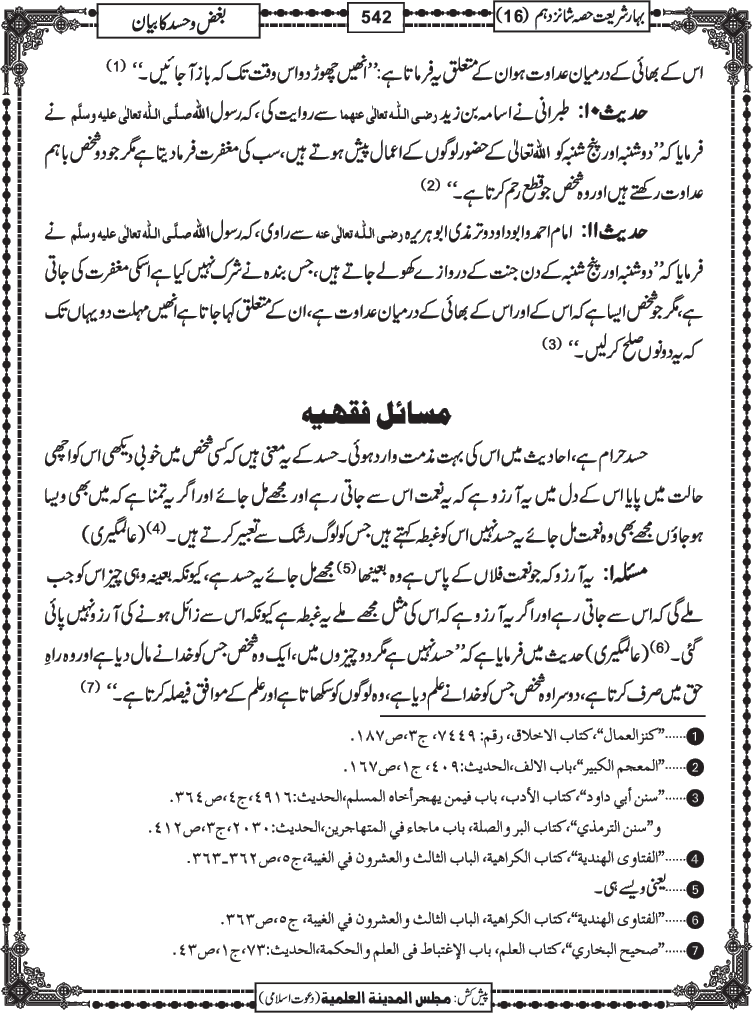 بہارِ شریعت حصہ شانزدہم (16)
542
بغض و حسد کا بیان
اس کے بھائی کے درمیان عداوت ہو ان کے متعلق یہ فرماتا ہے: ’’انھیں چھوڑ دو اس وقت تک کہ باز آجائیں۔‘‘ (1)
حدیث ۱۰: طبرانی نے اسامہ بن زید رضی اللہ تعالٰی عنھما سے روایت کی، کہ رسول اللہ صلَّی اللہ تعالٰی علیہ وسلَّم نے
فرمایا کہ ’’دوشنبہ اور پنج شنبہ کو اللہ تعالیٰ کے حضور لوگوں کے اعمال پیش ہوتے ہیں، سب کی مغفرت فرمادیتا ہے مگر جو دو شخص باہم
عداوت رکھتے ہیں اور وہ شخص جو قطع رحم کرتا ہے۔‘‘ (2)
حدیث ۱۱: امام احمد و ابو داود و ترمذی ابو ہریرہ رضی اللہ تعالٰی عنہ سے راوی، کہ رسول اللہ صلَّی اللہ تعالٰی علیہ وسلَّم نے
فرمایا کہ ’’دوشنبہ اور پنج شنبہ کے دن جنت کے دروازے کھولے جاتے ہیں، جس بندہ نے شرک نہیں کیا ہے اسکی مغفرت کی جاتی
ہے، مگر جو شخص ایسا ہے کہ اس کے اور اس کے بھائی کے درمیان عداوت ہے، ان کے متعلق کہا جاتا ہے انھیں مہلت دو یہاں تک
کہ یہ دونوں صلح کرلیں۔‘‘ (3)
مسائل فقھیہ
حسد حرام ہے، احادیث میں اس کی بہت مذمت وارد ہوئی۔ حسد کے یہ معنی ہیں کہ کسی شخص میں خوبی دیکھی اس کو اچھی
حالت میں پایا اس کے دل میں یہ آرزو ہے کہ یہ نعمت اس سے جاتی رہے اور مجھے مل جائے اور اگر یہ تمنا ہے کہ میں بھی ویسا
ہوجاؤں مجھے بھی وہ نعمت مل جائے یہ حسد نہیں اس کو غبطہ کہتے ہیں جس کو لوگ رشک سے تعبیر کرتے ہیں۔(4) (عالمگیری)
مسئلہ ۱: یہ آرزو کہ جو نعمت فلاں کے پاس ہے وہ بعینھا(5) مجھے مل جائے یہ حسد ہے، کیونکہ بعینہ وہی چیز اس کو جب
ملے گی کہ اس سے جاتی رہے اور اگر یہ آرزو ہے کہ اس کی مثل مجھے ملے یہ غبطہ ہے کیونکہ اس سے زائل ہونے کی آرزو نہیں پائی
گئی۔(6) (عالمگیری) حدیث میں فرمایا ہے کہ ’’حسد نہیں ہے مگر دو چیزوں میں، ایک وہ شخص جس کو خدا نے مال دیا ہے اور وہ راہِ
حق میں صرف کرتا ہے، دوسرا وہ شخص جس کو خدا نے علم دیا ہے، وہ لوگوں کو سکھاتا ہے اور علم کے موافق فیصلہ کرتا ہے۔‘‘ (7)
1......"کنزالعمال"، کتاب الاخلاق، رقم: ۷۴۴۹، ج۳، ص۱۸۷.
2......"المعجم الکبیر"، باب الالف، الحدیث: ۴۰۹، ج۱، ص۱۶۷.
3......"سنن أبي داود"، کتاب الأدب، باب فیمن یھجر أخاہ المسلم، الحدیث: ۴۹۱۶، ج۴، ص۳۶۴.
و"سنن الترمذي"، کتاب البر والصلة، باب ماجاء في المتهاجرین، الحدیث: ۲۰۳۰، ج۳، ص۴۱۲.
4......"الفتاوی الھندیة"، کتاب الکراھیة، الباب الثالث والعشرون في الغیبة، ج۵، ص۳۶۲۔۳۶۳.
5......یعنی ویسے ہی۔
6......"الفتاوی الھندیة"، کتاب الکراھیة، الباب الثالث والعشرون في الغیبة، ج۵، ص۳۶۳.
7......"صحیح البخاري"، کتاب العلم، باب الإغتباط في العلم والحکمة، الحدیث: ۷۳، ج۱، ص۴۳.
پیش کش: مجلس المدینة العلمیة (دعوت اسلامی)